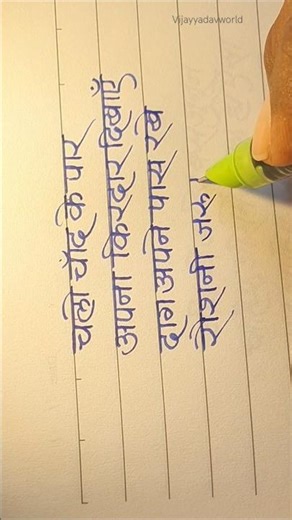 Vijayyadavworld
चलो चाँद के पार
अपना किरदार दिखाएँ
दाग अपने पास रखे
रोशनी जरु